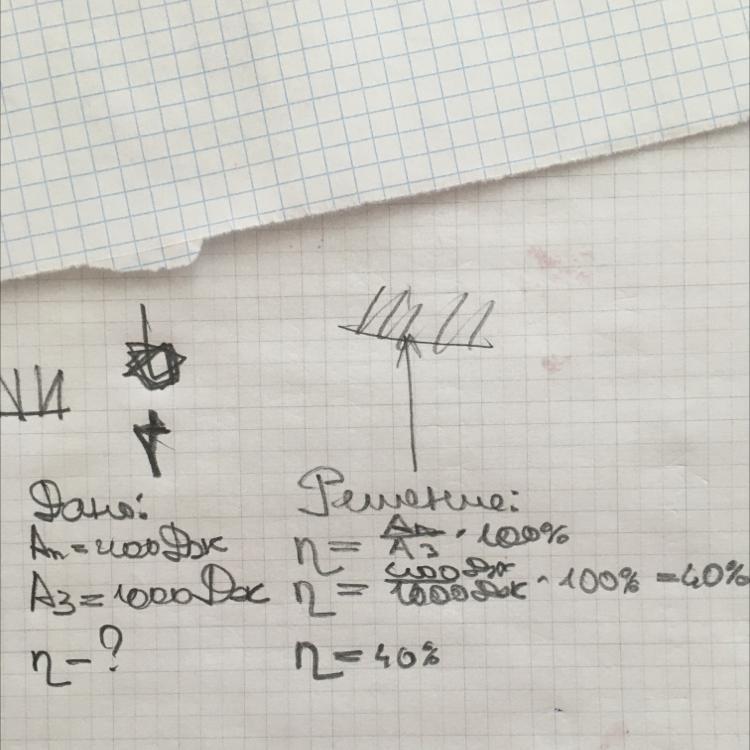 Дано:
Aп = 400 Дж
Aз = 1000 Дж
η - ?
Решение:
η = Aп/Aз · 100%
η = 400 Дж/1000 Дж · 100% = 40%
η = 40%